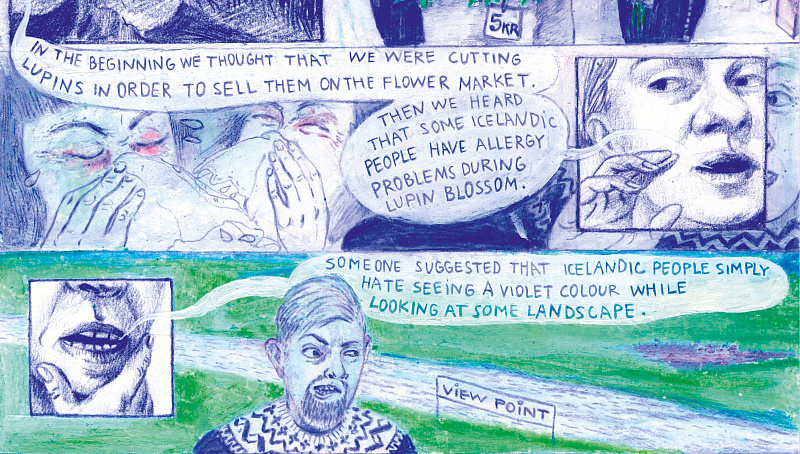 5KR
IN THE BEGINNING WE THOUGHT THAT WE WERE CUTTING
LUPINS IN ORDER TO SELL THEM ON THE FLOWER MARKET.
THEN WE HEARD
THAT SOME ICELANDIC
PEOPLE HAVE ALLERGY
PROBLEMS DURING
LUPIN BLOSSOM.
SOMEONE SUGGESTED THAT ICELANDIC PEOPLE SIMPLY
HATE SEEING A VIOLET COLOUR WHILE
LOOKING AT SOME LANDSCAPE.
VIEW POINT